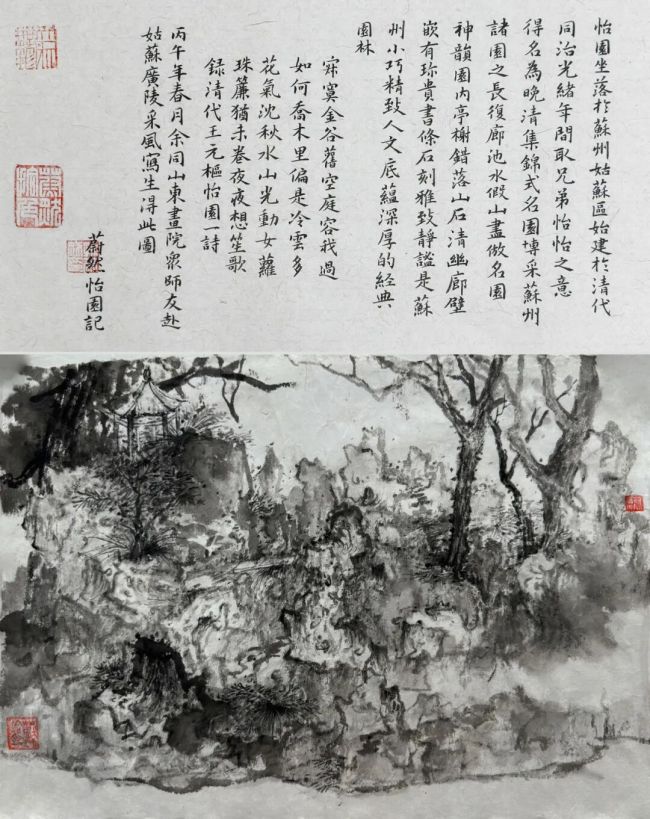 怡園坐落於蘇州姑蘇區始建於清代
同治光緒年間取兄弟怡怡之意
得名為晚清集錦式名園博采蘇州
諸園之長復廊池水假山盡倣名園
神韻園内亭榭錯落山石清幽廊壁
嵌有珍貴書條石刻雅致靜謐是蘇
州小巧精致人文底蘊深厚的經典
園林
寂寞金谷舊空庭容我過
如何喬木里偏是冷雲多
花氣沈秋水山光動女蘿
珠簾猶未卷夜夜想笙歌
録清代王元樞怡園一詩
丙午年春月余同山東畫院衆師友赴
姑蘇廣陵采風寫生得此圖
蔚然怡園記